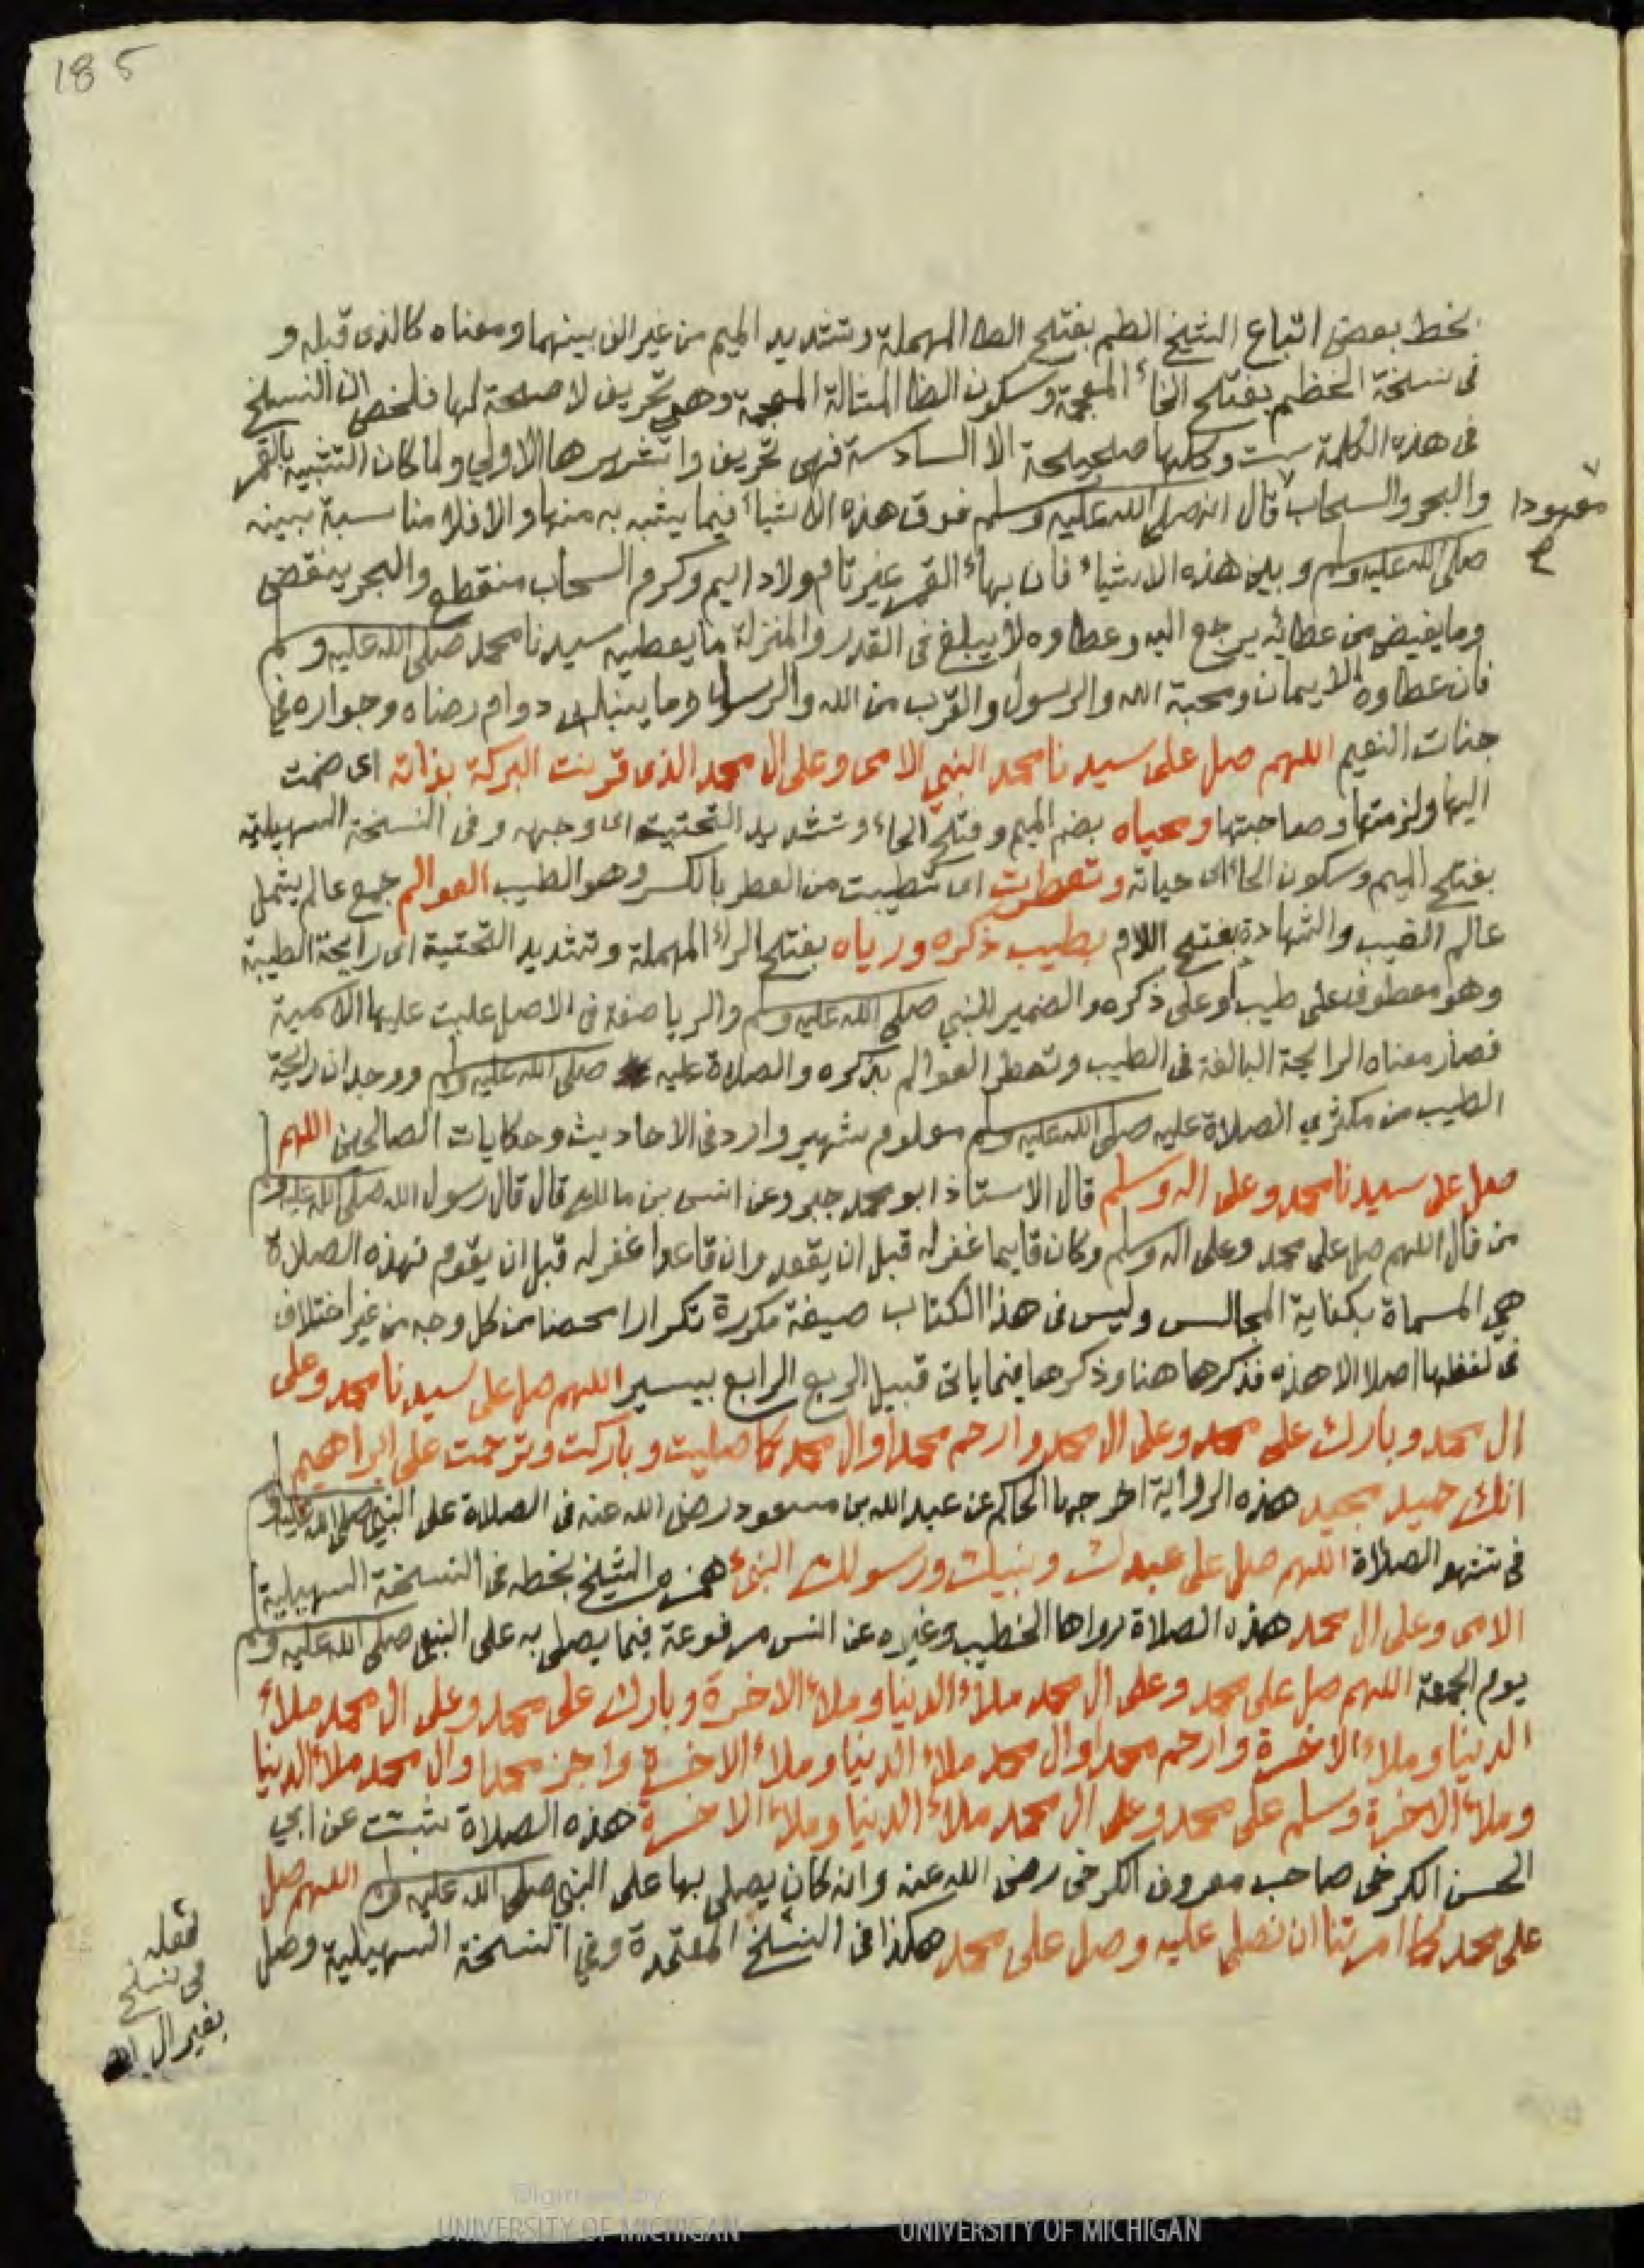 185
بخط بعض اتباع الشيخ الطم بفتح الطا المهملة وتشديد الميم من غير الف بينهما ومعناه كالذى قبله و
فى نسخة الخظم بفتح الخاء المعجمة وسكون الظا المشالة المعجمة وهى تحريف لا صحة لها فلخص ان النسخ
فى هذه الكلمة ست وكلها صحيحة الا السادسة فهى تحريف واشهرها الاولى ولما كان التشبيه بالقمر
والبحر والسحاب قال انه صلى الله عليه وسلم فوق هذه الاشياء فيما يشبه به منها والا فلا مناسبة بينه
معهودا
صح
صلى الله عليه وسلم وبين هذه الاشياء فان بهاء القمر غير تام ولا دايم وكرم السحاب منقطع والبحر ينقص
وما يفيض من عطائه يرجع اليه وعطاوه لا يبلغ فى القدر والمنزلة ما يعطيه سيدنا محمد صلى الله عليه وسلم
فان عطاوه الايمان ومحبة الله والرسول والقرب من الله والرسول وما ينبنى دوام رضاه وجواره فى
جنات النعيم اللهم صل على سيدنا محمد النبي الامى وعلى ال محمد الذى قرنت البركة بذاته اى ضمت
اليها ولزمتها وصاحبتها ومحياه بضم الميم وفتح الحاء وتشديد التحتية اى وجهه وفى النسخة السهيلية
بفتح الميم وسكون الحاء اى حياته وتعطرت اى تطيبت من العطر بالكسر وهو الطيب العوالم جمع عالم يشمل
عالم الغيب والشهادة بفتح اللام بطيب ذكره ورياه بفتح الراء المهملة وتشديد التحتية اى رايحة الطيبة
وهو معطوف على طيب او على ذكره والضمير للنبي صلى الله عليه وسلم والريا صفة فى الاصل غلبت عليها الاسمية
فصار معناه الرايحة البالغة فى الطيب وتعطر العوالم بذكره والصلاة عليه صلى الله عليه وسلم ووجدان رايحة
الطيب من مكثري الصلاة عليه صلى الله عليه وسلم معلوم شهير وارد فى الاحاديث وحكايات الصالحين اللهم
صل على سيدنا محمد وعلى اله وسلم قال الاستاذ ابو محمد جبر وعن انس بن مالك قال قال رسول الله صلى الله عليه وسلم
من قال اللهم صل على محمد وعلى اله وسلم وكان قايما غفر له قبل ان يقعد وان قاعدا غفر له قبل ان يقوم فهذه الصلاة
هي المسماة بكفاية المجالس وليس فى هذا الكتاب صيغة مكررة تكرارا محضا من كل وجه من غير اختلاف
فى لفظها اصلا الا هذه فذكرها هنا وذكرها فيما ياتى قبيل الربع الرابع بيسير اللهم صل على سيدنا محمد وعلى
ال محمد وبارك على محمد وعلى ال محمد وارحم محمدا وال محمد كما صليت وباركت وترحمت على ابراهيم
انك حميد مجيد هذه الرواية اخرجها الحاكم عن عبد الله بن مسعود رضى الله عنه فى الصلاة على النبي صلى الله عليه وسلم
فى تشهد الصلاة اللهم صل على عبدك ونبيك ورسولك النبىء همزه الشيخ بخطه فى النسخة السهيلية
الامى وعلى ال محمد هذه الصلاة رواها الخطيب وغيره عن انس مرفوعة فيما يصلى به على النبى صلى الله عليه وسلم
يوم الجمعة اللهم صل على محمد وعلى ال محمد ملاء الدنيا وملاء الاخرة وبارك على محمد وعلى ال محمد ملاء
الدنيا وملاء الاخرة وارحم محمدا وال محمد ملاء الدنيا وملاء الاخرة واجز محمدا وال محمد ملاء الدنيا
وملاء الاخرة وسلم على محمد وعلى ال محمد ملاء الدنيا وملاء الاخرة هذه الصلاة ثبتت عن ابي
الحسن الكرخى صاحب معروف الكرخى رضى الله عنه وانه كان يصلى بها على النبي صلى الله عليه وسلم اللهم صل
على محمد كما امرتنا ان نصلى عليه وصل على محمد هكذا فى النسخ المعتمدة وفي النسخة السهيلية وصل
فى نسخ
بغير ال
Digitized by
UNIVERSITY OF MICHIGAN
UNIVERSITY OF MICHIGAN